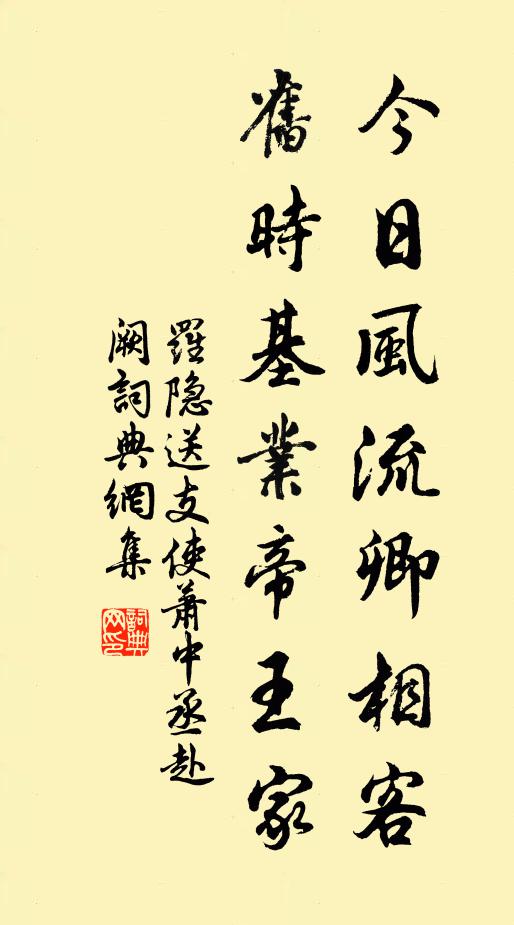 今日風流卿相客
舊時基業帝王家
羅隐送支使萧中丞赴
阙詞典網集
詞典網印